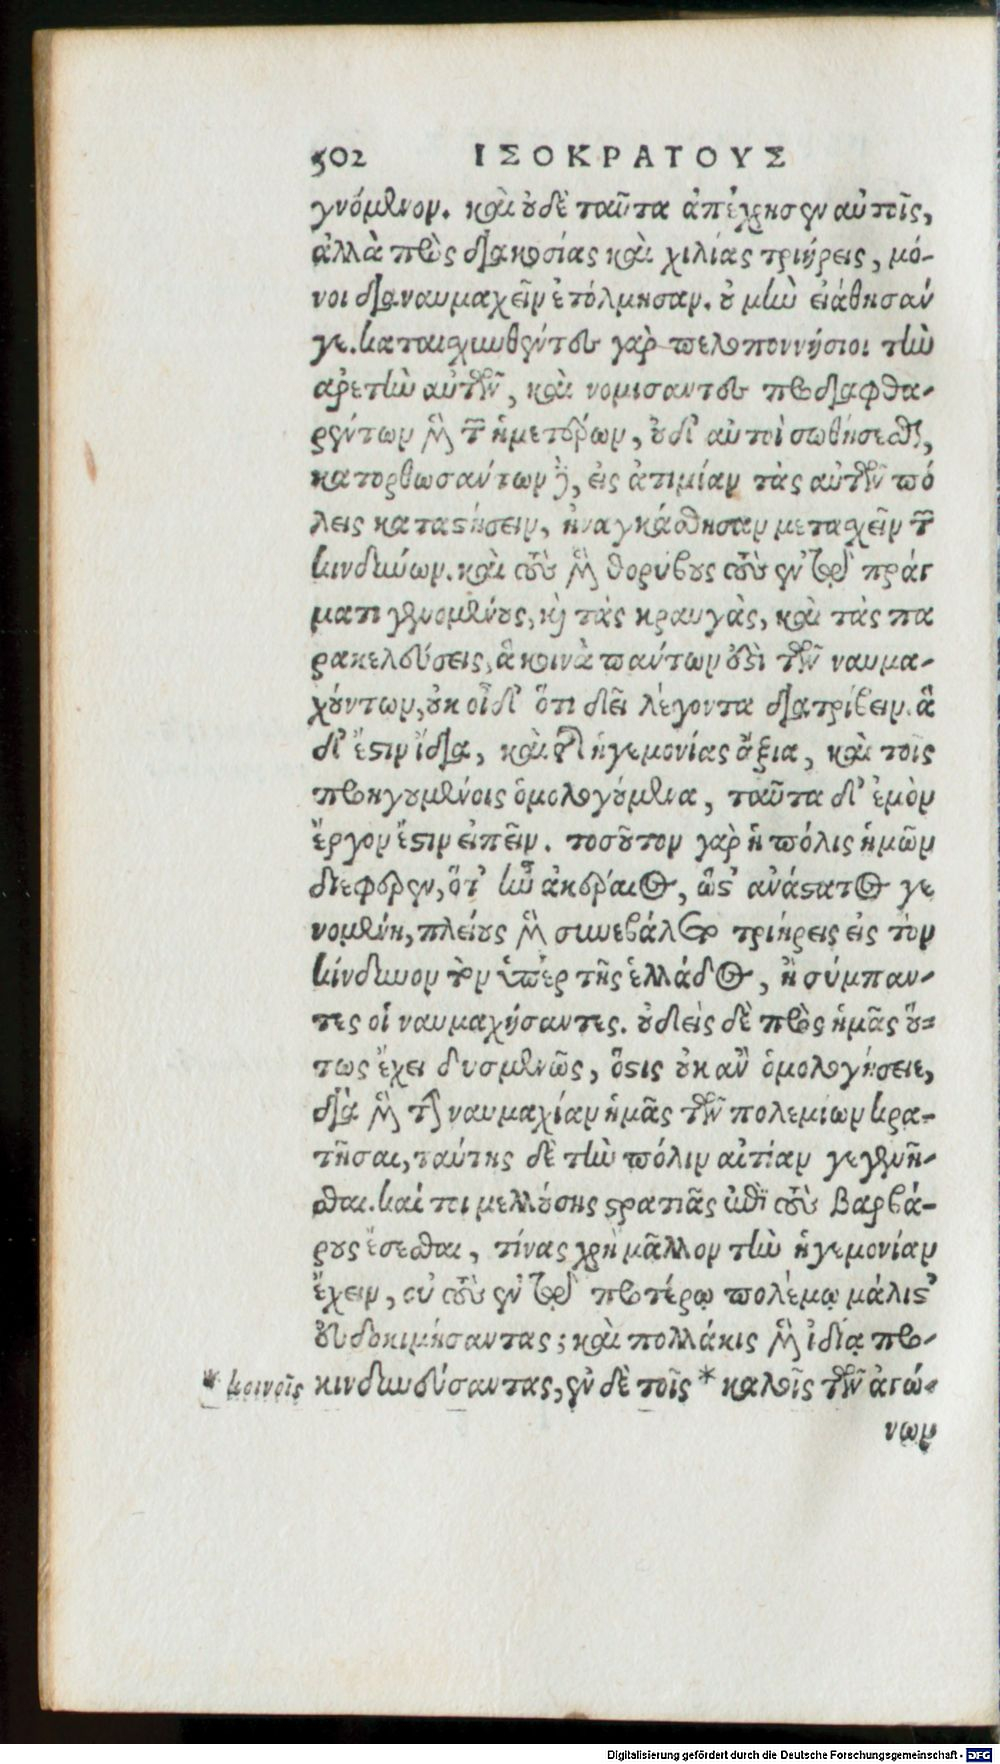 502 ΙΣΟΚΡΑΤΟΥΣ
γνόμενον. καὶ οὐδὲ ταῦτα ἀπέχρησεν αὐτοῖς,
ἀλλὰ πρὸς διακοσίας καὶ χιλίας τριήρεις, μό-
νοι διαναυμαχεῖν ἐτόλμησαν. οὐ μὴν εἰάθησάν
γε. καταισχυνθέντες γὰρ πελοποννήσιοι τὴν
ἀρετὴν αὐτῶν, καὶ νομίσαντες προδιαφθα-
ρέντων μὲν τῶν ἡμετέρων, οὐδ' αὐτοὶ σωθήσεσθαι,
κατορθωσάντων δὲ, εἰς ἀτιμίαν τὰς αὑτῶν πό
λεις καταστήσειν, ἠναγκάσθησαν μετασχεῖν τῶν
κινδύνων. καὶ τοὺς μὲν θορύβους τοὺς ἐν τῷ πράγ
ματι γενομένους, καὶ τὰς κραυγὰς, καὶ τὰς πα
ρακελεύσεις, ἃ κοινὰ πάντων ἐστὶ τῶν ναυμα-
χούντων, οὐκ οἶδ' ὅτι δεῖ λέγοντα διατρίβειν. ἃ
δ' ἔστιν ἴδια, καὶ τῆς ἡγεμονίας ἄξια, καὶ τοῖς
προηγουμένοις ὁμολογούμενα, ταῦτα δ' ἐμὸν
ἔργον ἔστιν εἰπεῖν. τοσοῦτον γὰρ ἡ πόλις ἡμῶν
διέφερεν, ὅτ' ἦν ἀκέραιος, ὥστ' ἀνάστατος γε
νομένη, πλείους μὲν συνεβάλετο τριήρεις εἰς τὸν
κίνδυνον τὸν ὑπὲρ τῆς ἑλλάδος, ἢ σύμπαν-
τες οἱ ναυμαχήσαντες. οὐδεὶς δὲ πρὸς ἡμᾶς οὕ-
τως ἔχει δυσμενῶς, ὅστις οὐκ ἂν ὁμολογήσειε,
διὰ μὲν τὴν ναυμαχίαν ἡμᾶς τῶν πολεμίων κρα-
τῆσαι, ταύτης δὲ τὴν πόλιν αἰτίαν γεγενῆ-
σθαι. καί τοι μελλούσης στρατιᾶς ἐπὶ τοὺς βαρβά-
ρους ἔσεσθαι, τίνας χρὴ μᾶλλον τὴν ἡγεμονίαν
ἔχειν, οὐ τοὺς ἐν τῷ προτέρῳ πολέμῳ μάλιστ'
εὐδοκιμήσαντας; καὶ πολλάκις μὲν ἰδίᾳ προ-
* κοινοῖς κινδυνεύσαντας, ἐν δὲ τοῖς * καλοῖς τῶν ἀγώ-
νων
Digitalisierung gefördert durch die Deutsche Forschungsgemeinschaft - DFG